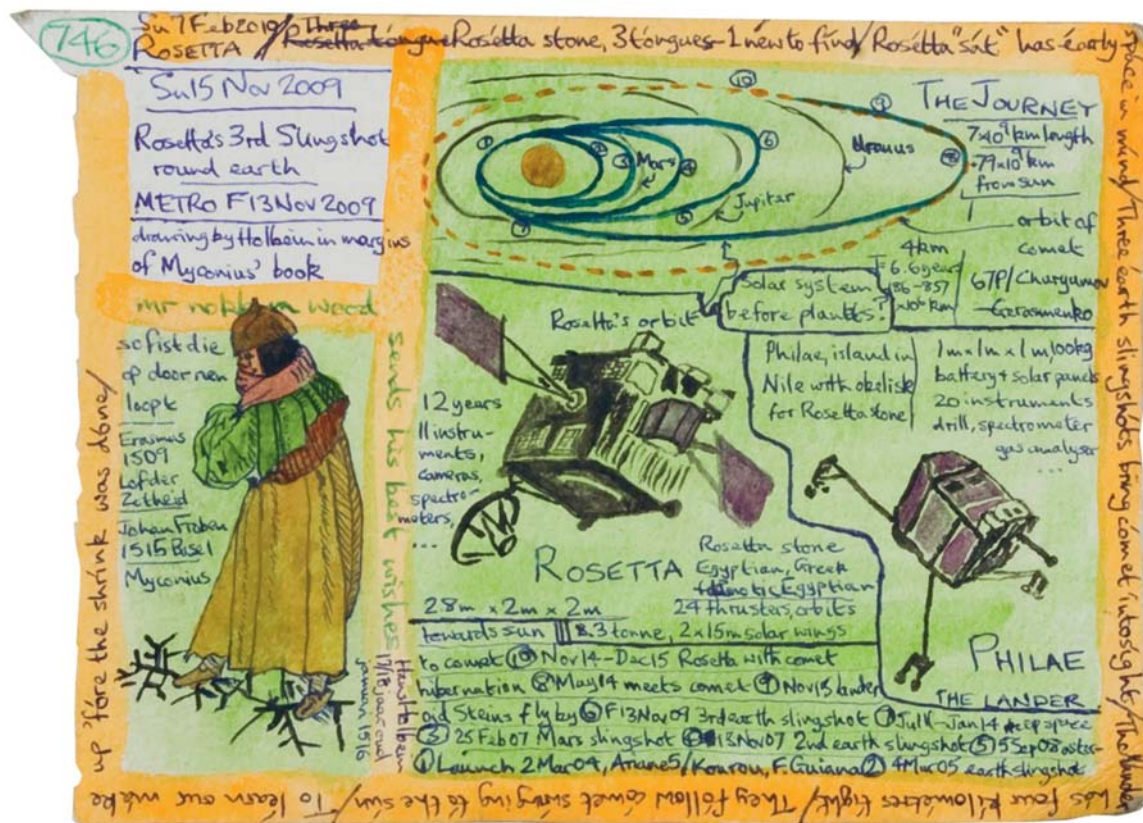 746
Su 7 Feb 2010 / Three
ROSETTA / Rosetta tongue Rosetta stone, 3 tongues - 1 new to find / Rosetta "sat" has early
space in mind / Three earth slingshots bring comet into sight / The lander
has four kilometres tight / They follow comet swinging to the sun / To learn our wake
up 'fore the shrink was done /
Su 15 Nov 2009
Rosetta's 3rd Slingshot
round earth
METRO F 13 Nov 2009
drawing by Holbein in margins
of Myconius' book
mr wood
sends his best wishes
sofist die
op doornen
loopt
Erasmus
1509
Lof der
Zotheid
Johan Froben
1515 Basel
Myconius
Hans Holbein
17/18 jaar oud
januari 1516
THE JOURNEY
7x10⁹ km length
.79x10⁹ km
from sun
orbit of
comet
67P/Churyumov
-Gerasimenko
4km
6.6 years
186-857
x10⁶ km
1
2
3
4
5
6
7
8
9
10
Mars
Jupiter
Uranus
Solar system
before planets?
Rosetta's orbit
12 years
11 instru-
ments,
cameras,
spectro-
meters,
...
Philae, island in
Nile with obelisk
for Rosetta stone
1m x 1m x 1m, 100kg
battery + solar panels
20 instruments
drill, spectrometer
gas analyser
...
ROSETTA
Rosetta stone
Egyptian, Greek
+ demotic Egyptian
24 thrusters, orbits
2.8m x 2m x 2m
towards sun ||| 3 tonne, 2x15m solar wings
to comet ⑩ Nov 14 - Dec 15 Rosetta with comet
hibernation ⑧ May 14 meets comet ⑨ Nov 15 lander
oid Steins flyby ⑥ F 13 Nov 09 3rd earth slingshot ⑦ Jul 11 - Jan 14 deep space
③ 25 Feb 07 Mars slingshot ④ 13 Nov 07 2nd earth slingshot ⑤ 5 Sep 08 aster-
① Launch 2 Mar 04, Ariane 5/Kourou, F. Guiana ② 4 Mar 05 earth slingshot
PHILAE
THE LANDER